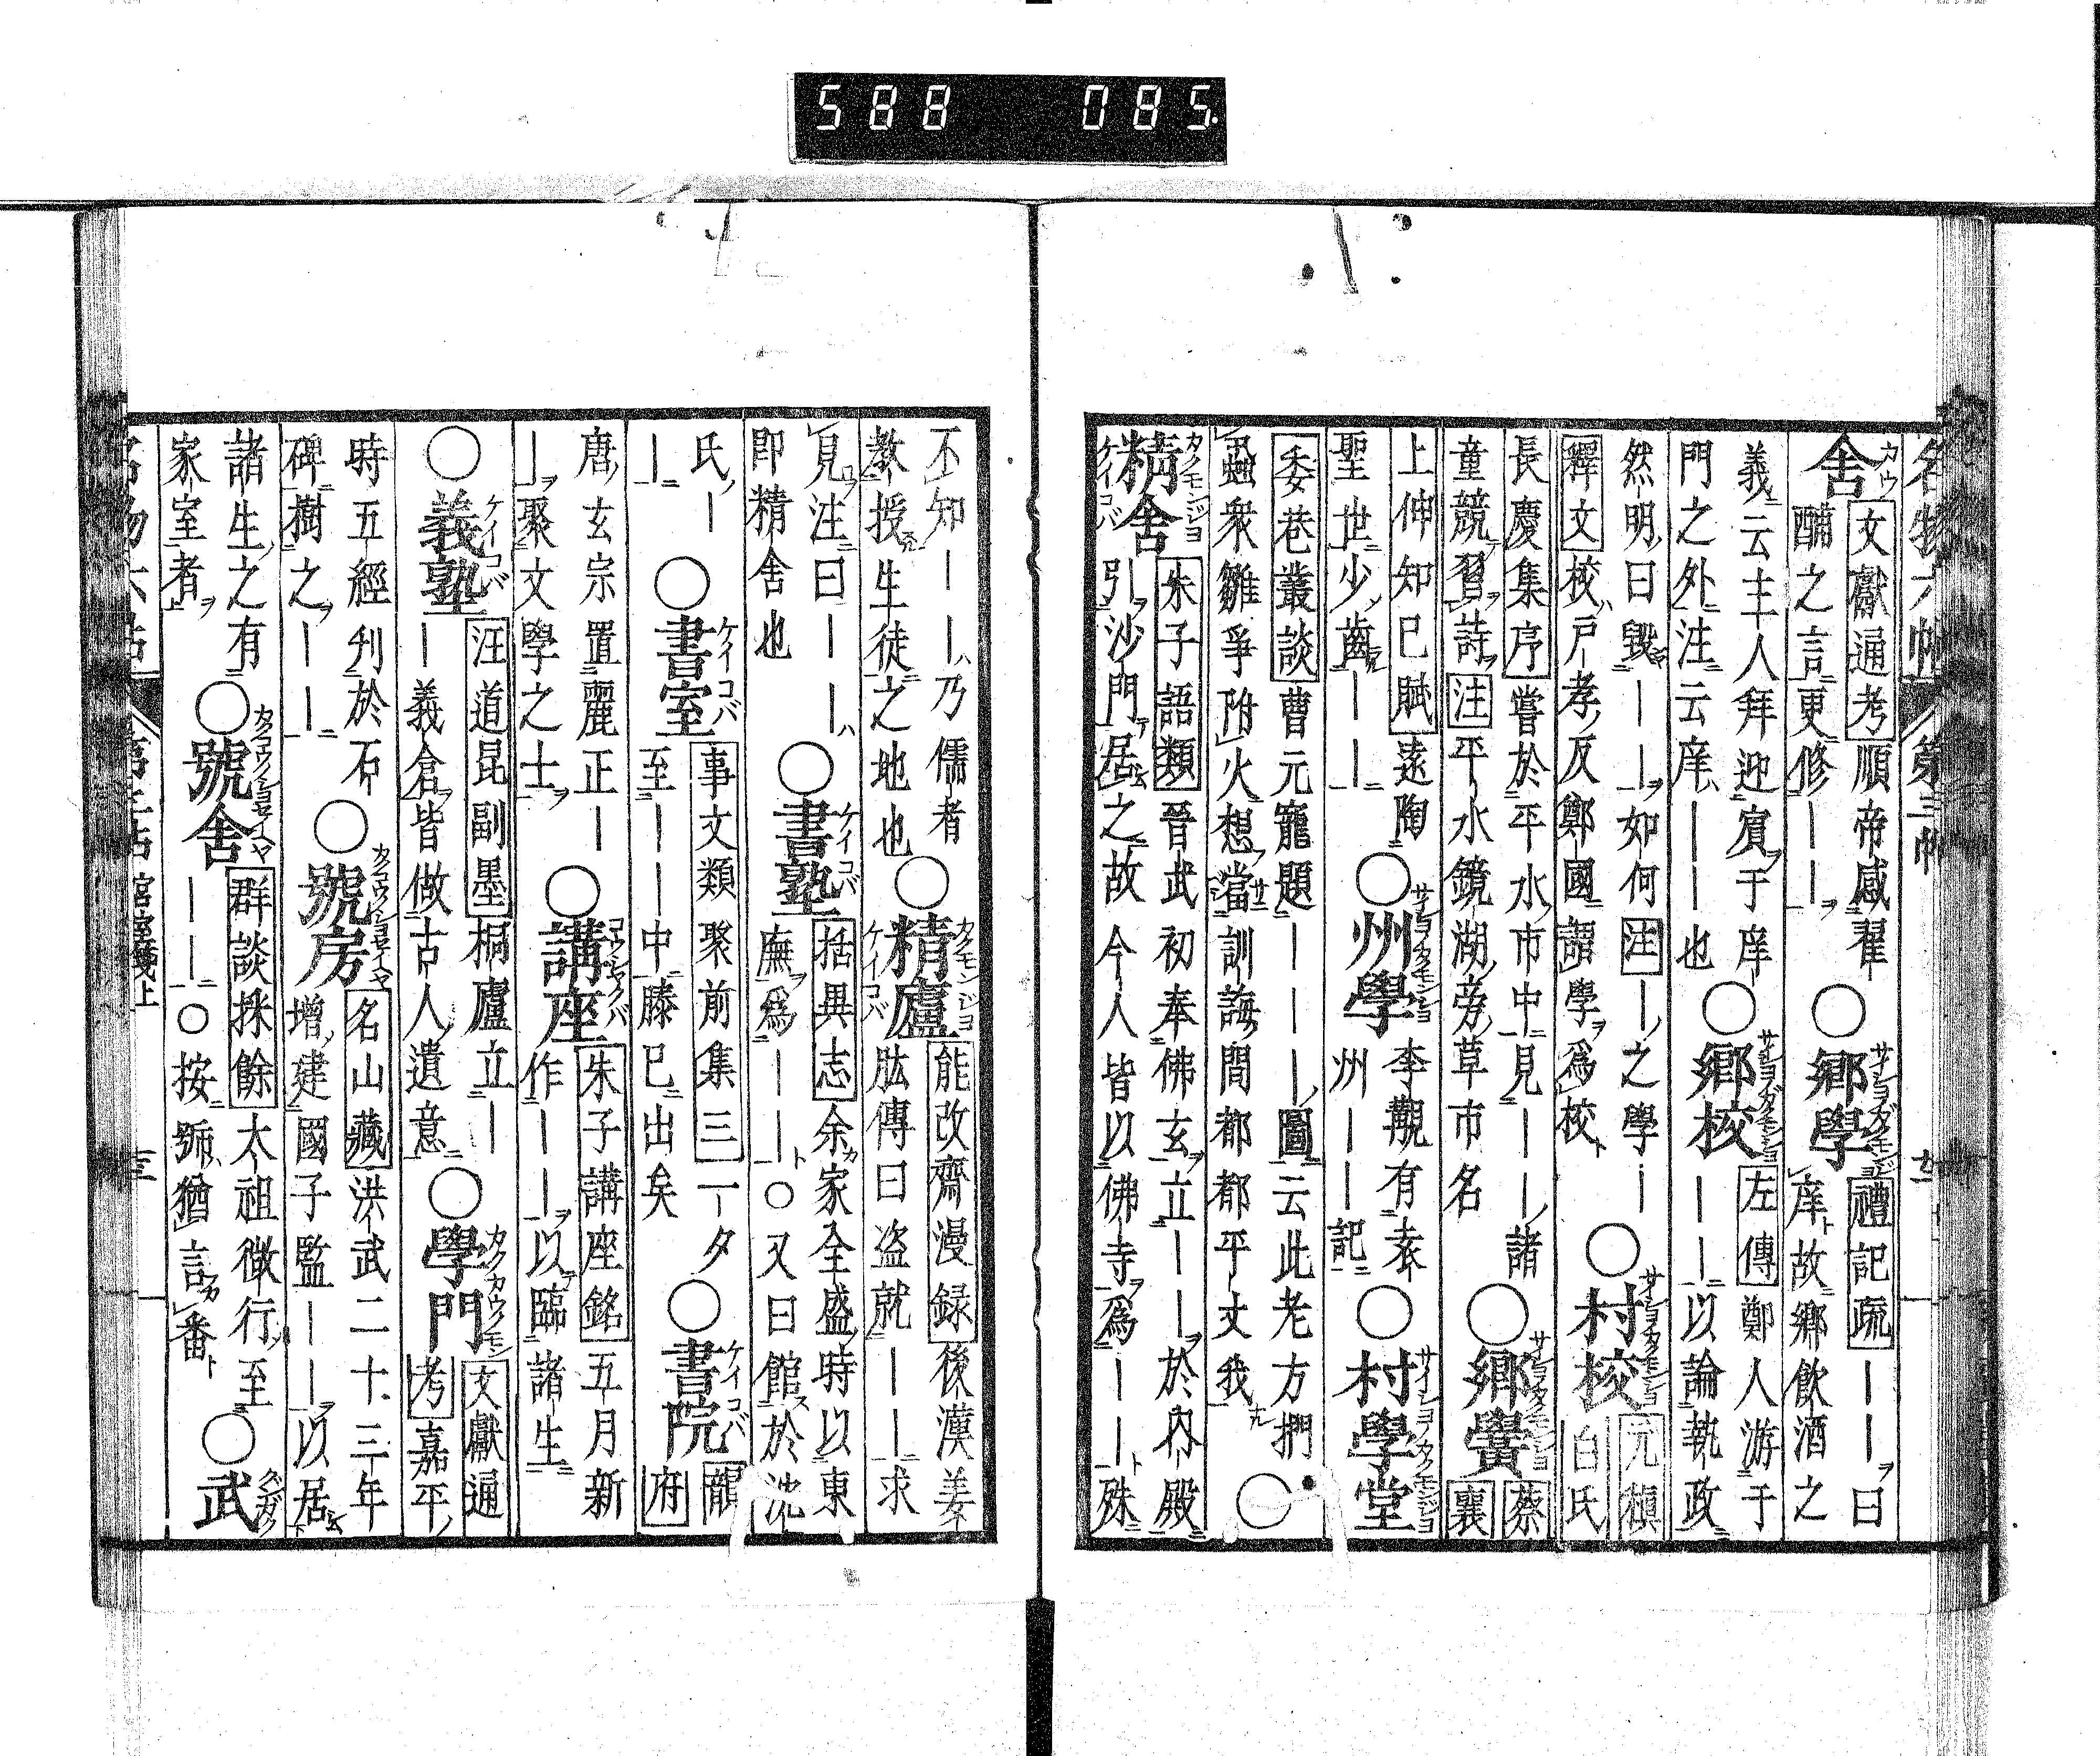 588 085
名物六帖 第三帖
舍 文獻通考順帝感翟酺之言更修――○鄉學 禮記疏――曰庠故鄉飲酒之
義云主人拜迎賓于庠門之外注云庠――也○鄉校 左傳鄭人游于――以論執政
然明曰毀――如何注―之學―釋文校戶孝反鄭國謂學為校○村校 元稹白氏
長慶集序嘗於平水市中見――諸童競習詩注平水鏡湖旁草市名○鄉黌 蔡襄
上伸知己賦遠陶聖世少齒――○州學 李覯有袁州――記○村學堂
委巷叢談曹元寵題―――圖云此老方捫蝨衆雛爭附火想當訓誨間都都平丈我○
精舍 朱子語類晉武初奉佛玄立――於內殿引沙門居之故今人皆以佛寺為――殊
不知――乃儒者教授生徒之地也○精廬 能改齋漫録後漢姜肱傳曰盗就――求
見注曰――即精舍也○書塾 括異志余家全盛時以東廡為――○又曰館於沈
氏――○書室 事文類聚前集三一夕至――中滕已出矣○書院 龍府
唐玄宗置麗正――聚文學之士○講座 朱子講座銘五月新作――以臨諸生
○義塾 汪道昆副墨桐廬立――義倉皆做古人遺意○學門 文獻通考嘉平
時五經刋於石碑樹之――○號房 名山藏洪武二十三年增建國子監――以居
諸生之有家室者○號舍 群談採餘太祖微行至――○按號猶言番○武